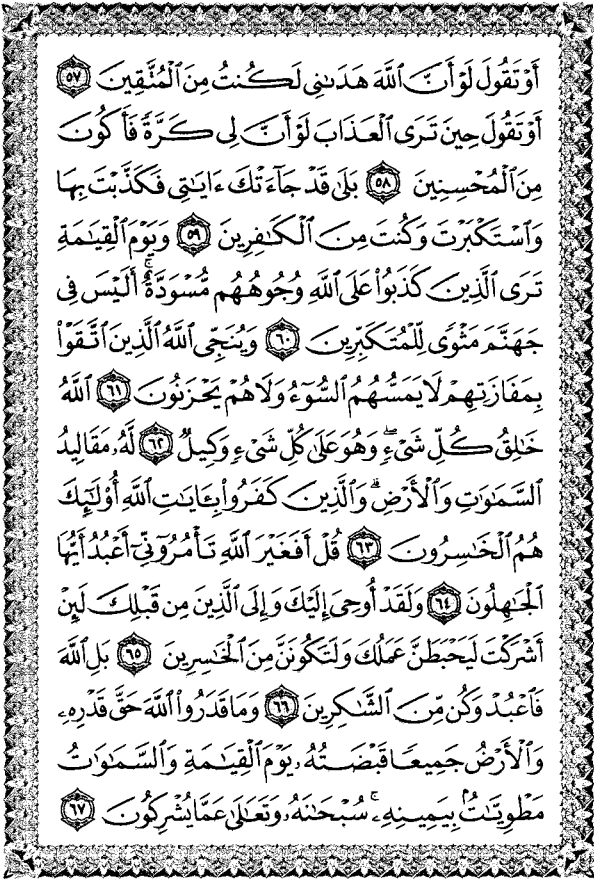 أَوْ تَقُولَ لَوْ أَنَّ ٱللَّهَ هَدَىٰنِى لَكُنتُ مِنَ ٱلْمُتَّقِينَ ﴿٥٧﴾
أَوْ تَقُولَ حِينَ تَرَى ٱلْعَذَابَ لَوْ أَنَّ لِى كَرَّةً فَأَكُونَ
مِنَ ٱلْمُحْسِنِينَ ﴿٥٨﴾ بَلَىٰ قَدْ جَآءَتْكَ ءَايَـٰتِى فَكَذَّبْتَ بِهَا
وَٱسْتَكْبَرْتَ وَكُنتَ مِنَ ٱلْكَـٰفِرِينَ ﴿٥٩﴾ وَيَوْمَ ٱلْقِيَـٰمَةِ
تَرَى ٱلَّذِينَ كَذَبُوا۟ عَلَى ٱللَّهِ وُجُوهُهُم مُّسْوَدَّةٌ ۚ أَلَيْسَ فِى
جَهَنَّمَ مَثْوًى لِّلْمُتَكَبِّرِينَ ﴿٦٠﴾ وَيُنَجِّى ٱللَّهُ ٱلَّذِينَ ٱتَّقَوْا۟
بِمَفَازَتِهِمْ لَا يَمَسُّهُمُ ٱلسُّوٓءُ وَلَا هُمْ يَحْزَنُونَ ﴿٦١﴾ ٱللَّهُ
خَـٰلِقُ كُلِّ شَىْءٍ ۖ وَهُوَ عَلَىٰ كُلِّ شَىْءٍ وَكِيلٌ ﴿٦٢﴾ لَّهُۥ مَقَالِيدُ
ٱلسَّمَـٰوَٰتِ وَٱلْأَرْضِ ۗ وَٱلَّذِينَ كَفَرُوا۟ بِـَٔايَـٰتِ ٱللَّهِ أُو۟لَـٰٓئِكَ
هُمُ ٱلْخَـٰسِرُونَ ﴿٦٣﴾ قُلْ أَفَغَيْرَ ٱللَّهِ تَأْمُرُوٓنِّىٓ أَعْبُدُ أَيُّهَا
ٱلْجَـٰهِلُونَ ﴿٦٤﴾ وَلَقَدْ أُوحِىَ إِلَيْكَ وَإِلَى ٱلَّذِينَ مِن قَبْلِكَ لَئِنْ
أَشْرَكْتَ لَيَحْبَطَنَّ عَمَلُكَ وَلَتَكُونَنَّ مِنَ ٱلْخَـٰسِرِينَ ﴿٦٥﴾ بَلِ ٱللَّهَ
فَٱعْبُدْ وَكُن مِّنَ ٱلشَّـٰكِرِينَ ﴿٦٦﴾ وَمَا قَدَرُوا۟ ٱللَّهَ حَقَّ قَدْرِهِۦ
وَٱلْأَرْضُ جَمِيعًا قَبْضَتُهُۥ يَوْمَ ٱلْقِيَـٰمَةِ وَٱلسَّمَـٰوَٰتُ
مَطْوِيَّـٰتٌۢ بِيَمِينِهِۦ ۚ سُبْحَـٰنَهُۥ وَتَعَـٰلَىٰ عَمَّا يُشْرِكُونَ ﴿٦٧﴾